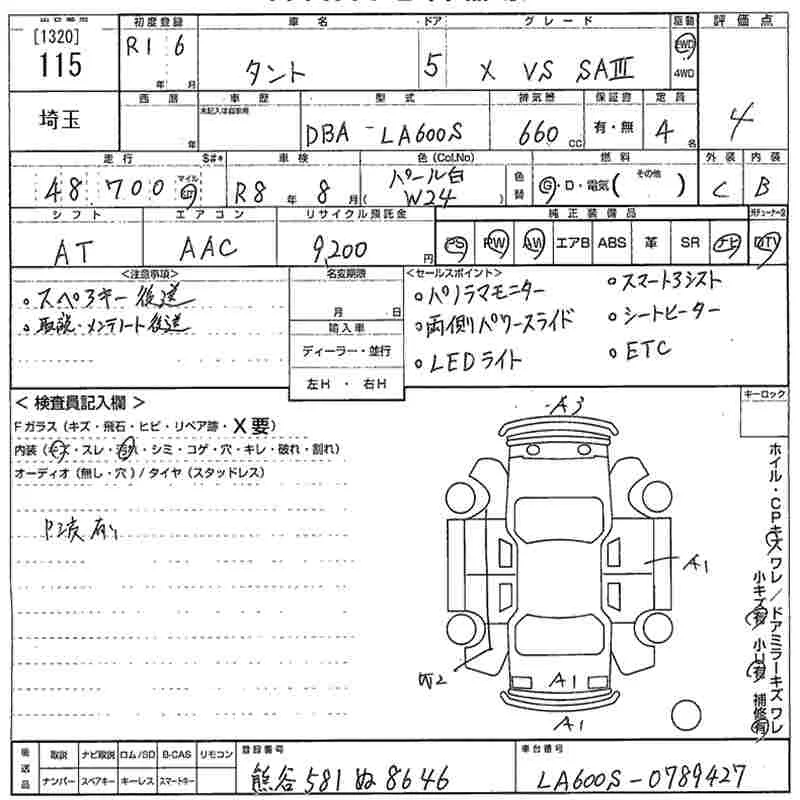 出品番号 初度登録 車名 ドア グレード 駆動 評価点
[1320]
115 R1 6 タント 5 X VS SAⅢ 2WD 4WD 4
年 月
埼玉 西暦 車歴 型式 排気量 保証書 定員
未記入は自家用
年 DBA-LA600S 660cc 有・無 4名
走行 S#* 車検 色(Col.No) 燃料 その他 外装 内装
48,700 マイル km R8年 8月 パール白 W24 色替 G・D・電気( ) C B
シフト エアコン リサイクル預託金 純正装備品
AT AAC 9,200円 PS PW AW エアB ABS 革 SR ナビ DTV
<注意事項> 名変期限 <セールスポイント>
。スペアキー後送 月 日 。パノラマモニター 。スマートアシスト
。取説・メンテノート後送 輸入車 。両側パワースライド 。シートヒーター
ディーラー・並行 。LEDライト 。ETC
左H・右H
<検査員記入欄> キーロック
Fガラス(キズ・飛石・ヒビ・リペア跡・X要)
内装(キズ・スレ・汚れ・シミ・コゲ・穴・キレ・破れ・割れ)
オーディオ(無し・穴)/タイヤ(スタッドレス)
A3
A1
W2
A1
A1
ホイル・CPキズ ワレ/ドアミラーキズ ワレ
小キズ有 小凹有 補修有
後送品 取説 ナビ取説 ロム/SD B-CAS リモコン 登録番号 車台番号
ナンバー スペアキー キーレス スマートキー 熊谷 581 ぬ 8646 LA600S-0789427